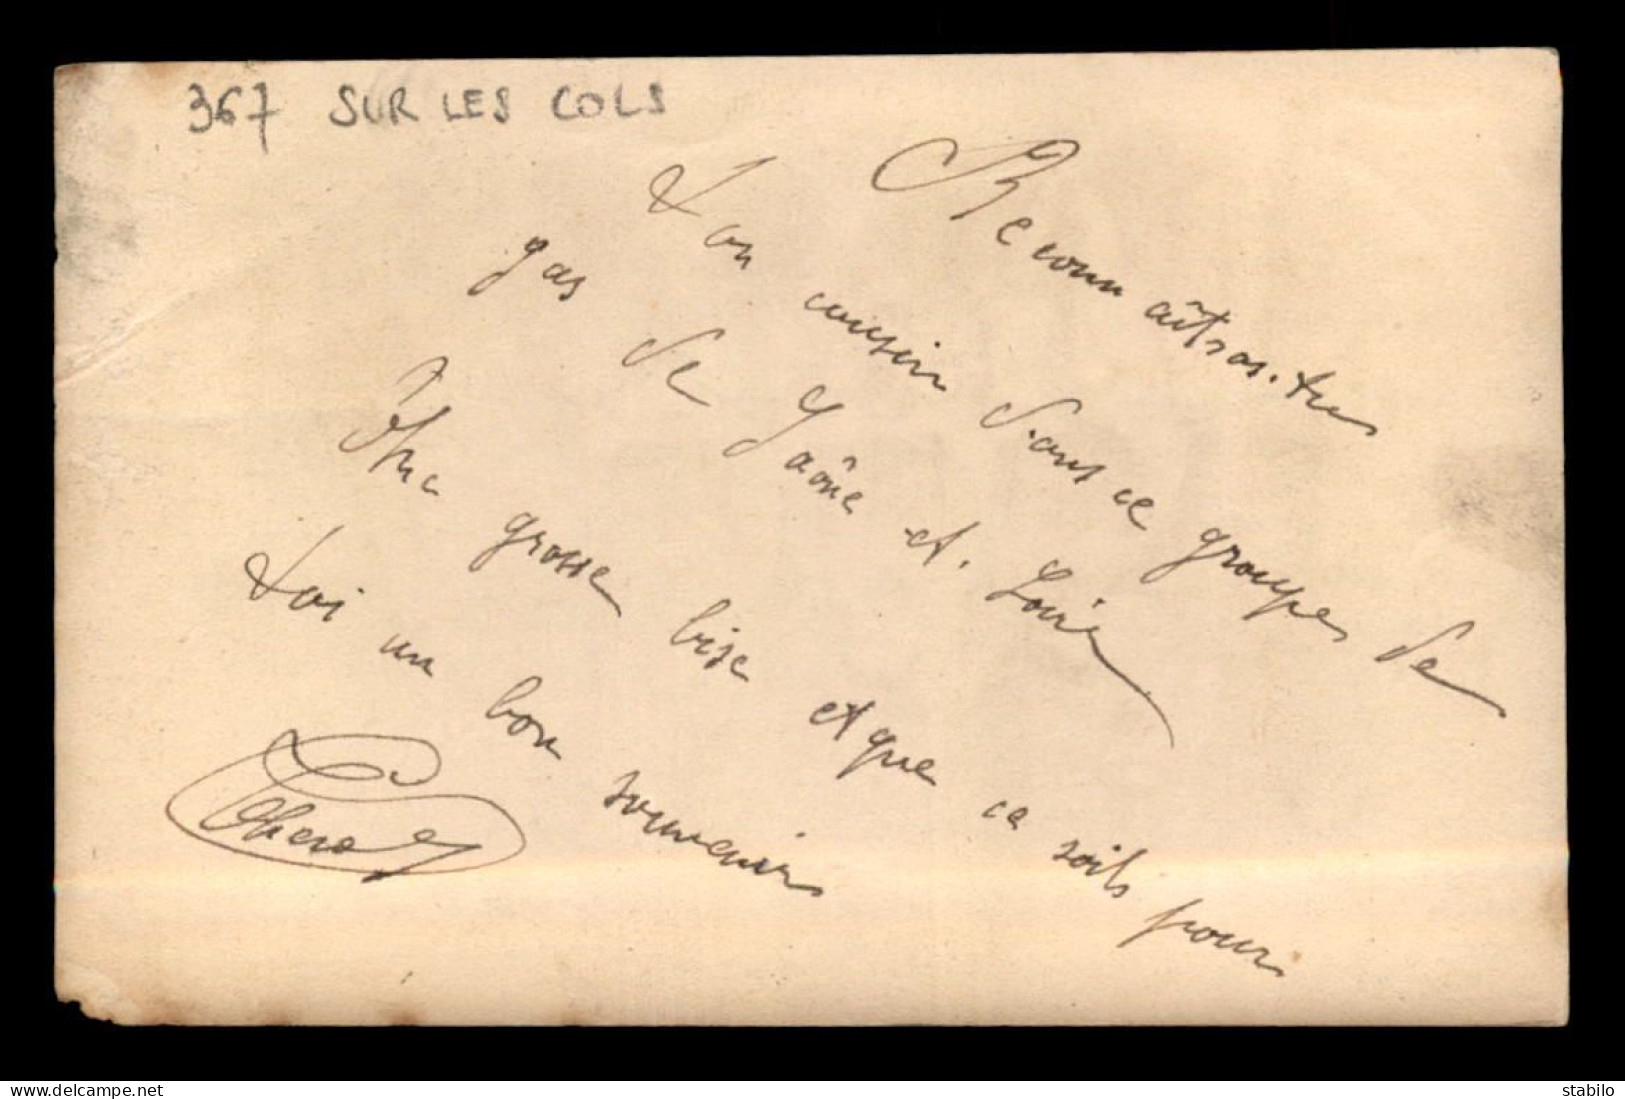 367 SUR LES COLS
Reconnaîtras-tu
ton cousin dans ce groupe de
gas de Saône et-Loire
Une grosse bise et que ce soit pour
toi un bon souvenir
www.delcampe.net
stabilo